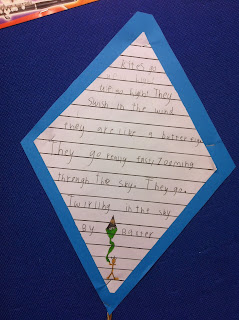 Kites go
so light They
Swish in the wind
they are like a
They go really fast, Zooming
through the sky. They go
Twirling in the sky
By